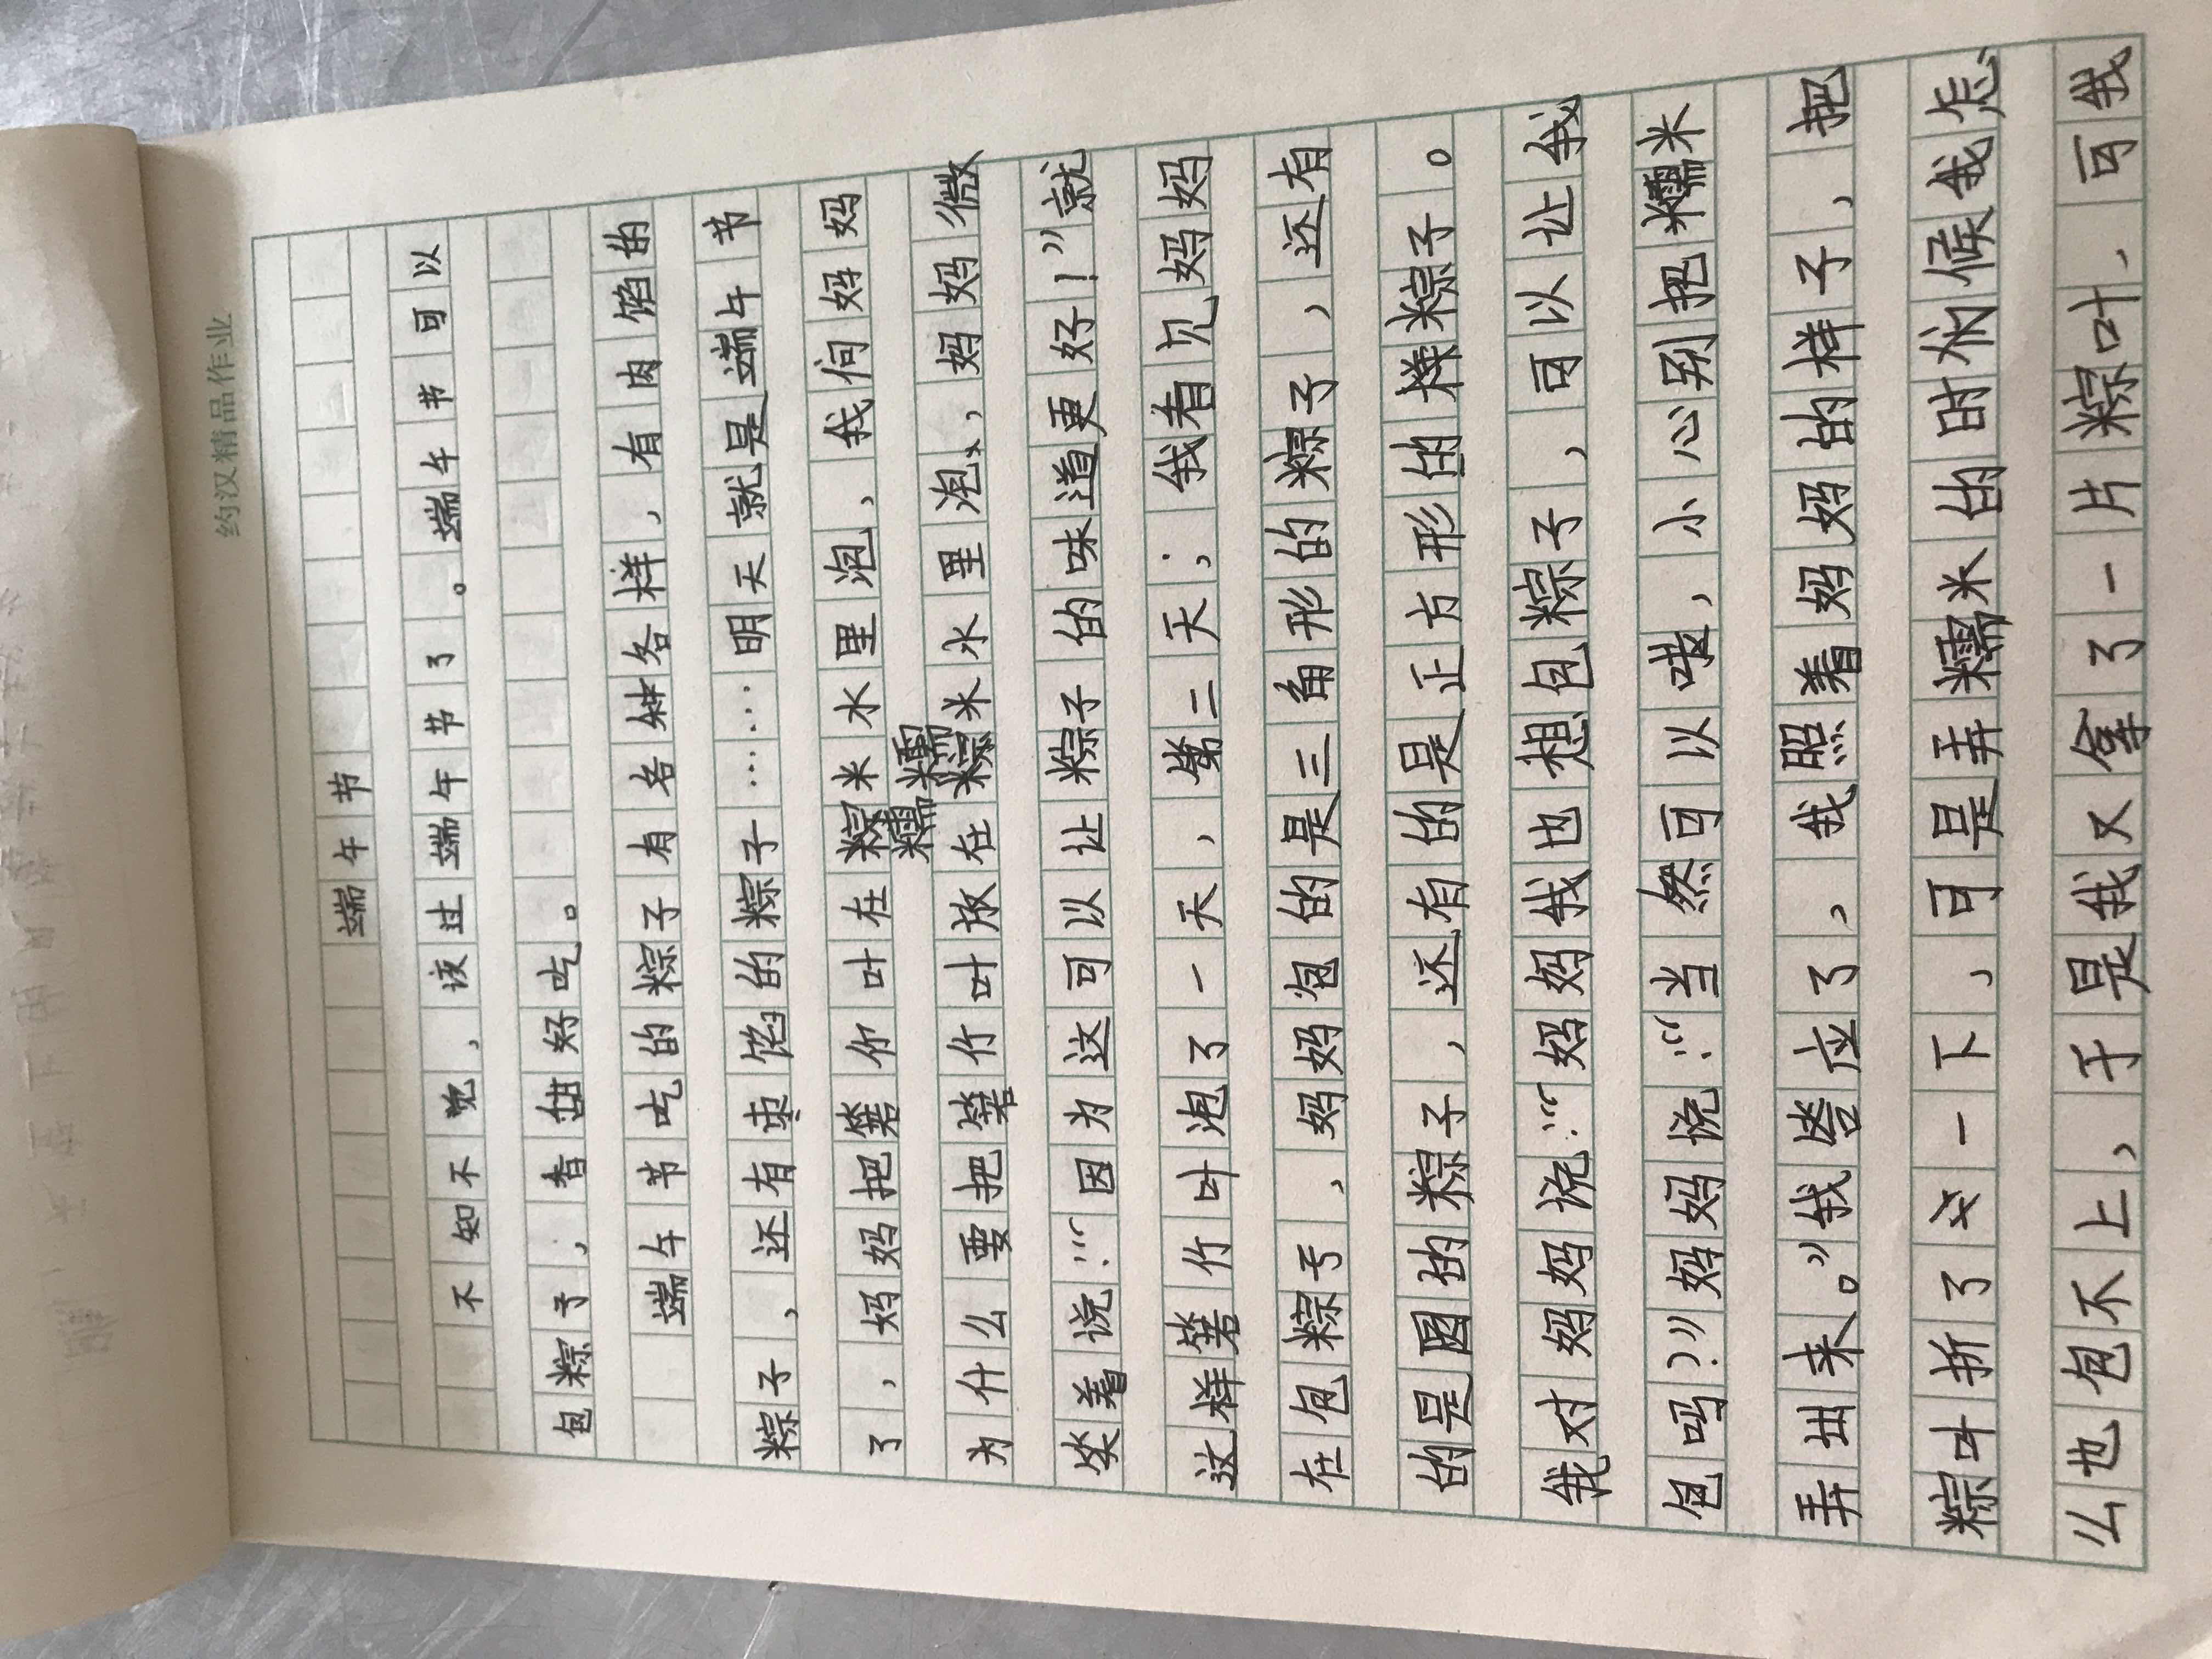 约汉精品作业
端午节
不知不觉，该过端午节了。端午节可以
包粽子，香甜好吃。
端午节吃的粽子有各种各样，有肉馅的
粽子，还有枣馅的粽子……明天就是端午节
了，妈妈把箬竹叶在粽米水里泡，我问妈妈
糯 糯
为什么要把箬竹叶放在粽米水里泡，妈妈微
笑着说：“因为这可以让粽子的味道更好！”就
这样箬竹叶泡了一天，第二天；我看见妈妈
在包粽子，妈妈包的是三角形的粽子，还有
的是圆的粽子，还有的是正方形的样粽子。
我对妈妈说：“妈妈我也想包粽子，可以让我
包吗？”妈妈说：“当然可以啦，小心别把糯米
弄出来。”我答应了，我照着妈妈的样子，把
粽叶折了一下，可是弄糯米的时候我怎
么也包不上，于是我又拿了一片粽叶，可我